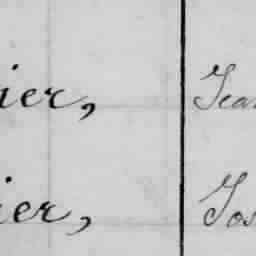 ier, Jea
ier, Jos